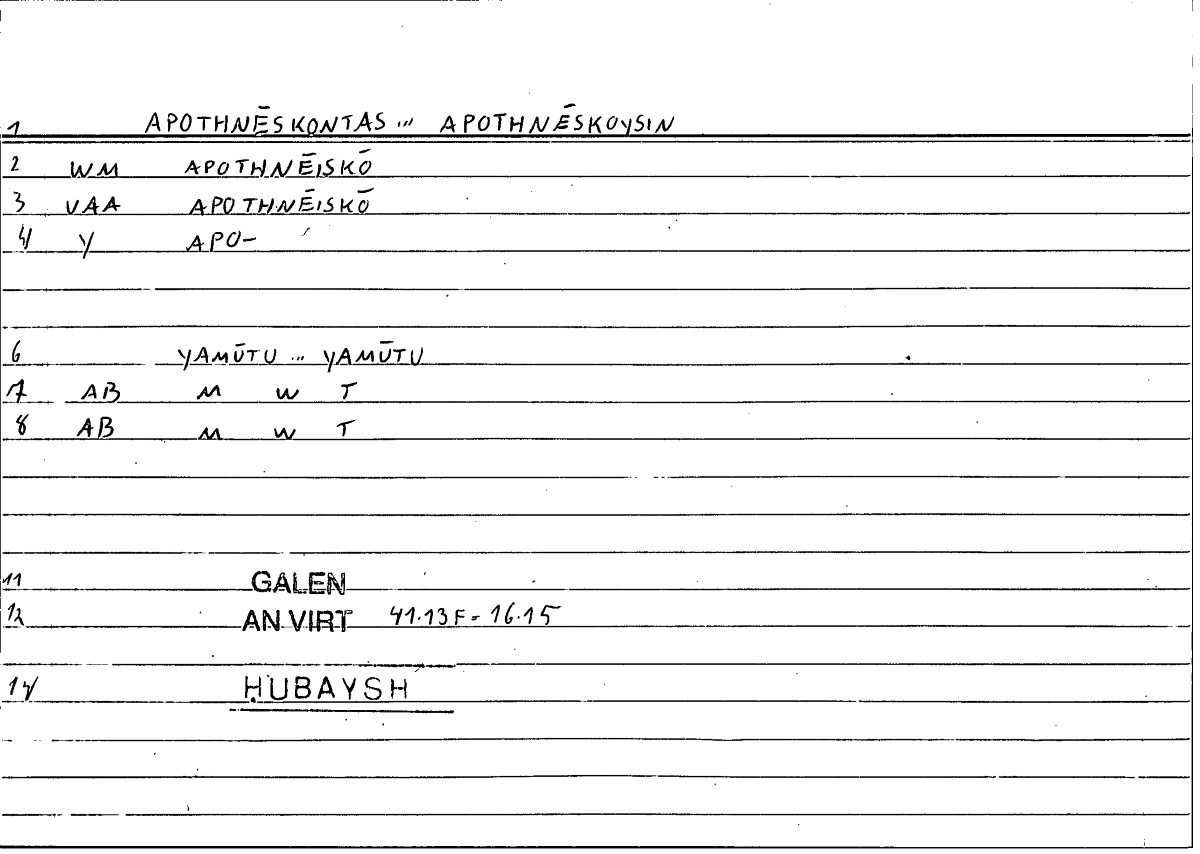 1 APOTHNĒSKONTAS ... APOTHNĒSKOYSIN
2 WM APOTHNĒISKŌ
3 VAA APOTHNĒISKŌ
4 Y APO-
6 YAMŪTU ... YAMŪTU
7 AB M W T
8 AB M W T
11 GALEN
12 AN.VIRT 41.13F = 16.15
14 ḤUBAYSH